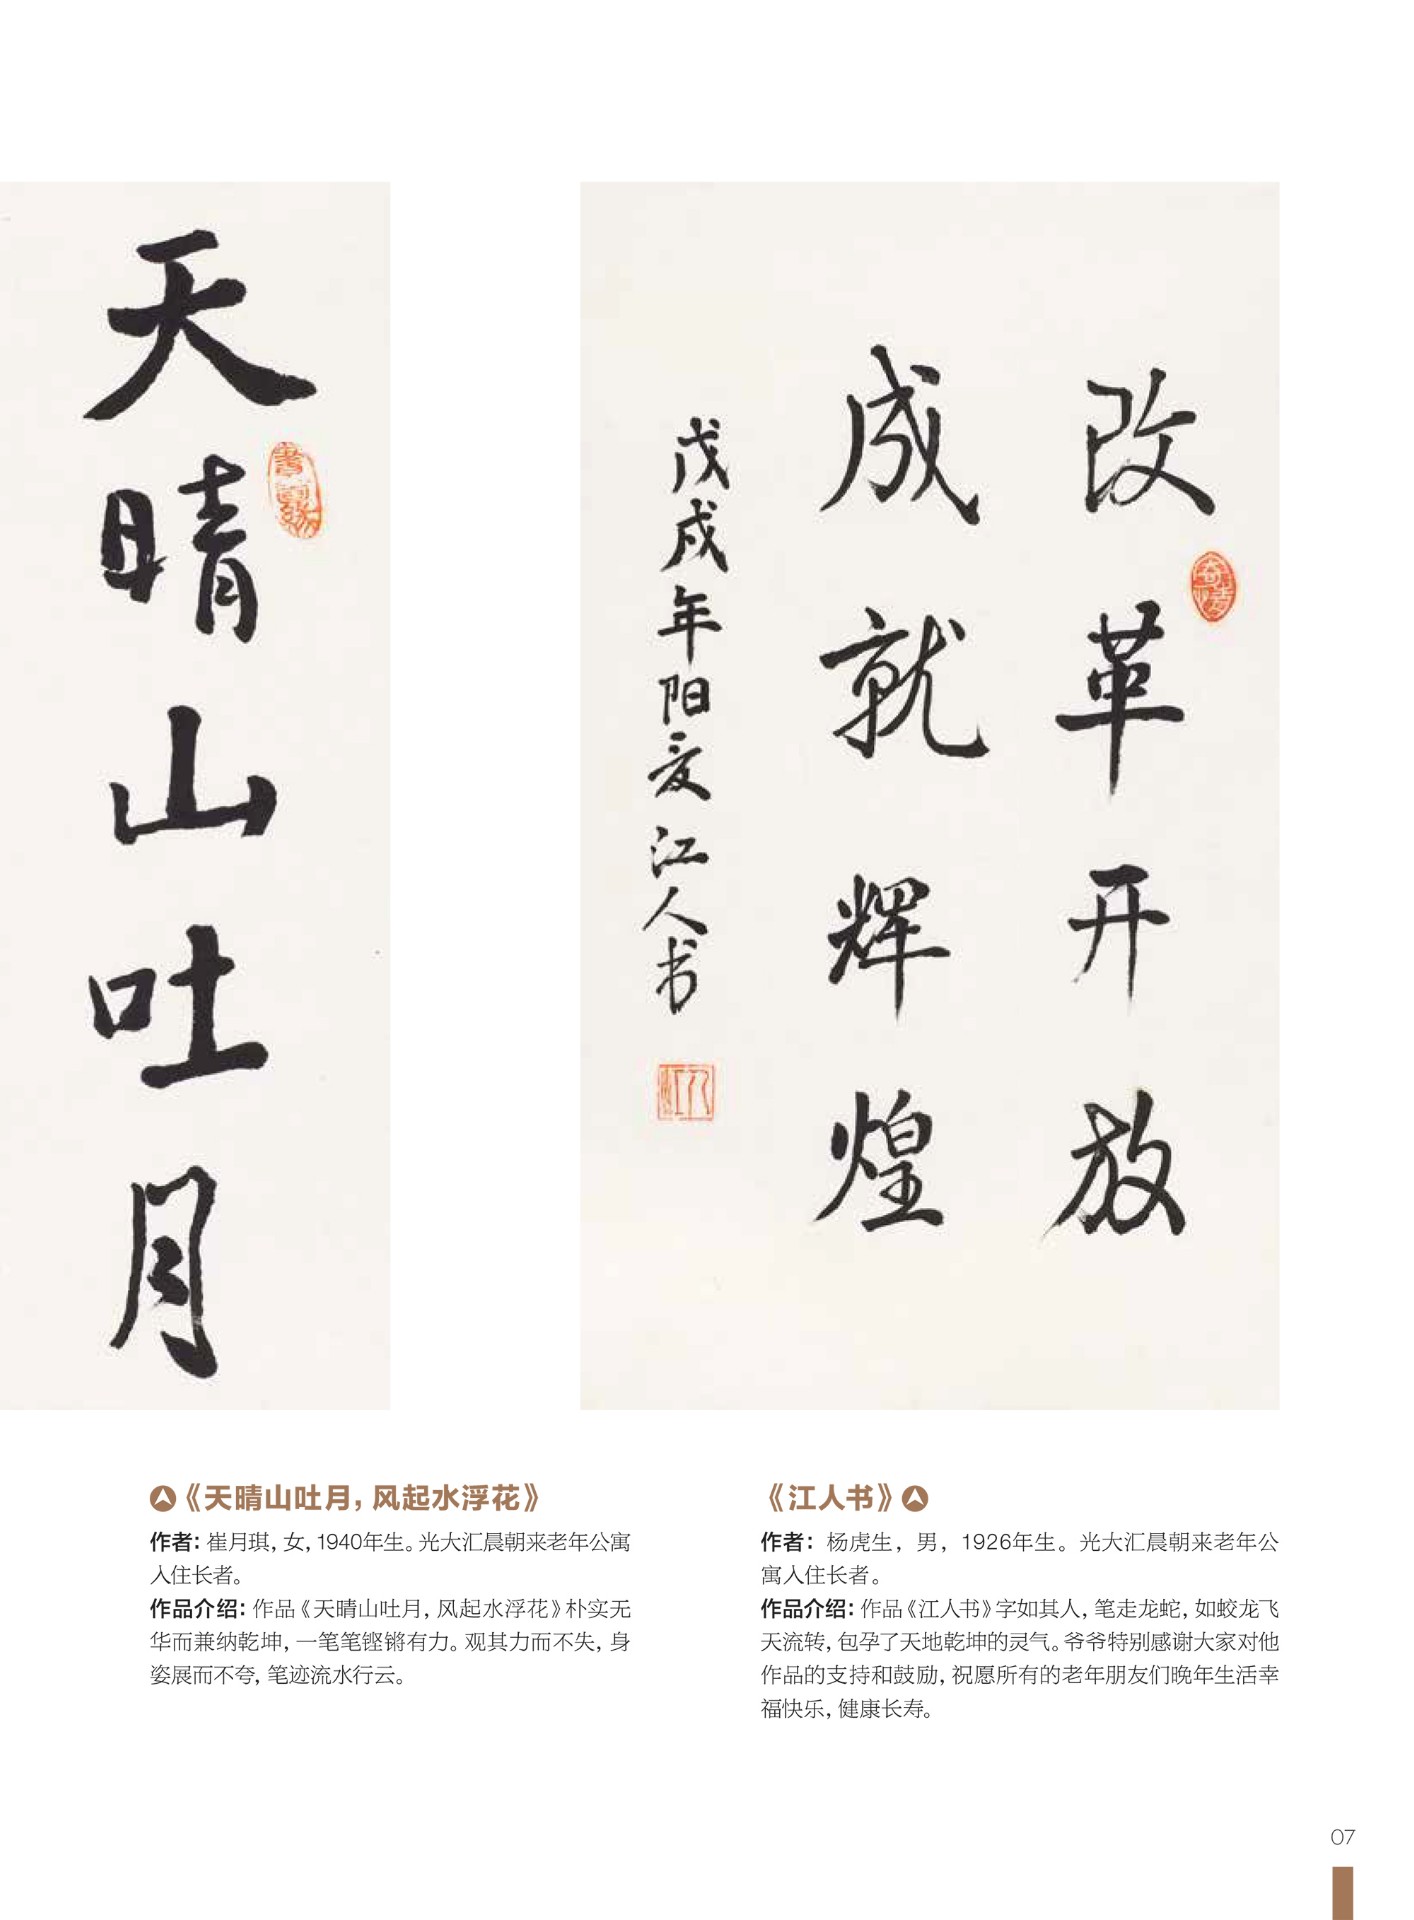 天晴山吐月
改革开放
成就辉煌
戊戌年阳夏江人书
《天晴山吐月，风起水浮花》
作者：崔月琪，女，1940年生。光大汇晨朝来老年公寓
入住长者。
作品介绍：作品《天晴山吐月，风起水浮花》朴实无
华而兼纳乾坤，一笔笔铿锵有力。观其力而不失，身
姿展而不夸，笔迹流水行云。
《江人书》
作者：杨虎生，男，1926年生。光大汇晨朝来老年公
寓入住长者。
作品介绍：作品《江人书》字如其人，笔走龙蛇，如蛟龙飞
天流转，包孕了天地乾坤的灵气。爷爷特别感谢大家对他
作品的支持和鼓励，祝愿所有的老年朋友们晚年生活幸
福快乐，健康长寿。
07